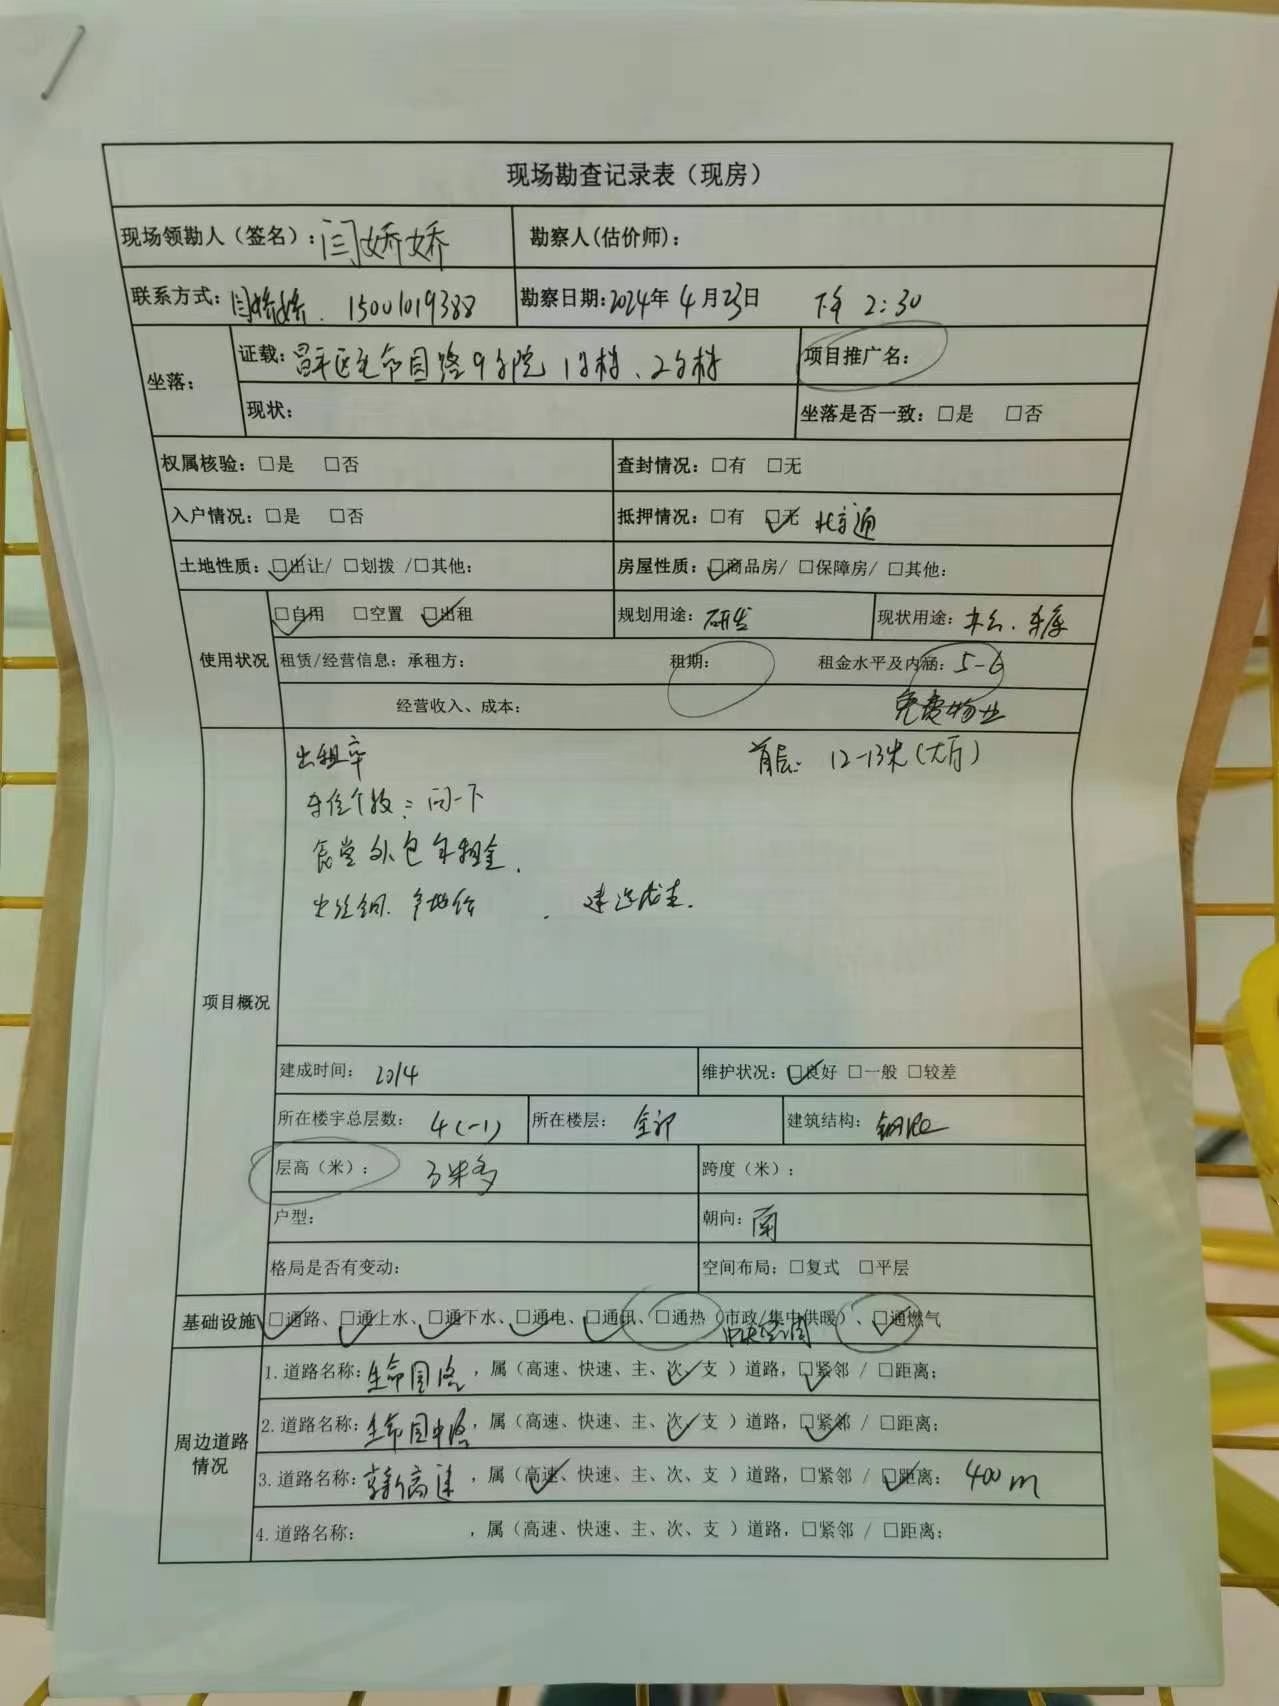 现场勘查记录表（现房）
现场领勘人（签名）：闫娇娇 勘察人(估价师)：
联系方式：闫娇娇. 15001019388 勘察日期：2024年4月23日 下午 2:30
坐落： 证载：昌平区生命园路9号院1号楼、2号楼 项目推广名：
现状： 坐落是否一致：□是 □否
权属核验：□是 □否 查封情况：□有 □无
入户情况：□是 □否 抵押情况：□有 ☑无
土地性质：☑出让/ □划拨 /□其他： 房屋性质：☑商品房/ □保障房/ □其他：
使用状况 ☑自用 □空置 ☑出租 规划用途：研发 现状用途：办公、车库
租赁/经营信息：承租方： 租期： 租金水平及内涵：5-6
经营收入、成本： 免费物业
出租率 首层: 12-13米(大厅)
车位个数：问一下
食堂外包年租金.
建造成本.
项目概况
建成时间：2014 维护状况：☑良好 □一般 □较差
所在楼宇总层数：4(-1) 所在楼层：全部 建筑结构：钢混
层高（米）：3米多 跨度（米）：
户型： 朝向：南
格局是否有变动： 空间布局：□复式 □平层
基础设施 ☑通路、☑通上水、☑通下水、☑通电、☑通讯、□通热（市政/集中供暖）、☑通燃气
中央空调
周边道路情况 1.道路名称：生命园路，属（高速、快速、主、次✓、支 ）道路，☑紧邻 / □距离；
2.道路名称：生命园中路，属（高速、快速、主、次✓、支 ）道路，☑紧邻 / □距离；
3.道路名称：京新高速，属（高速✓、快速、主、次、支 ）道路，□紧邻 / ☑距离；400m
4.道路名称： ，属（高速、快速、主、次、支 ）道路，□紧邻 / □距离；